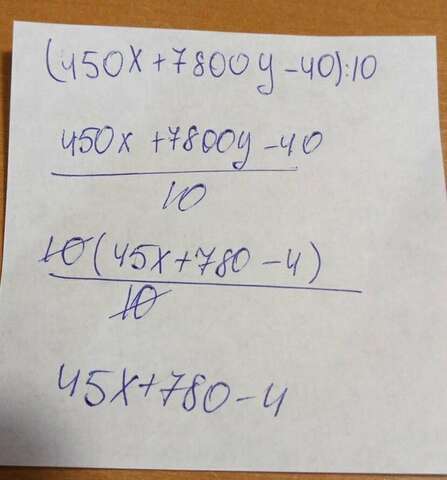 (450x+7800y-40):10
450x+7800y-40
10
10(45x+780-4)
10
45x+780-4